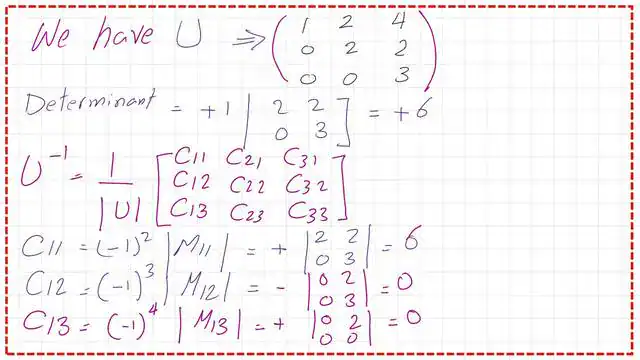 We have U ⇒ (1 2 4
0 2 2
0 0 3)
Determinant = +1 |2 2
0 3] = +6
U⁻¹ = 1/|U| [C11 C21 C31
C12 C22 C32
C13 C23 C33]
C11 = (-1)² |M11| = + |2 2
0 3| = 6
C12 = (-1)³ |M12| = - |0 2
0 3| = 0
C13 = (-1)⁴ |M13| = + |0 2
0 0| = 0